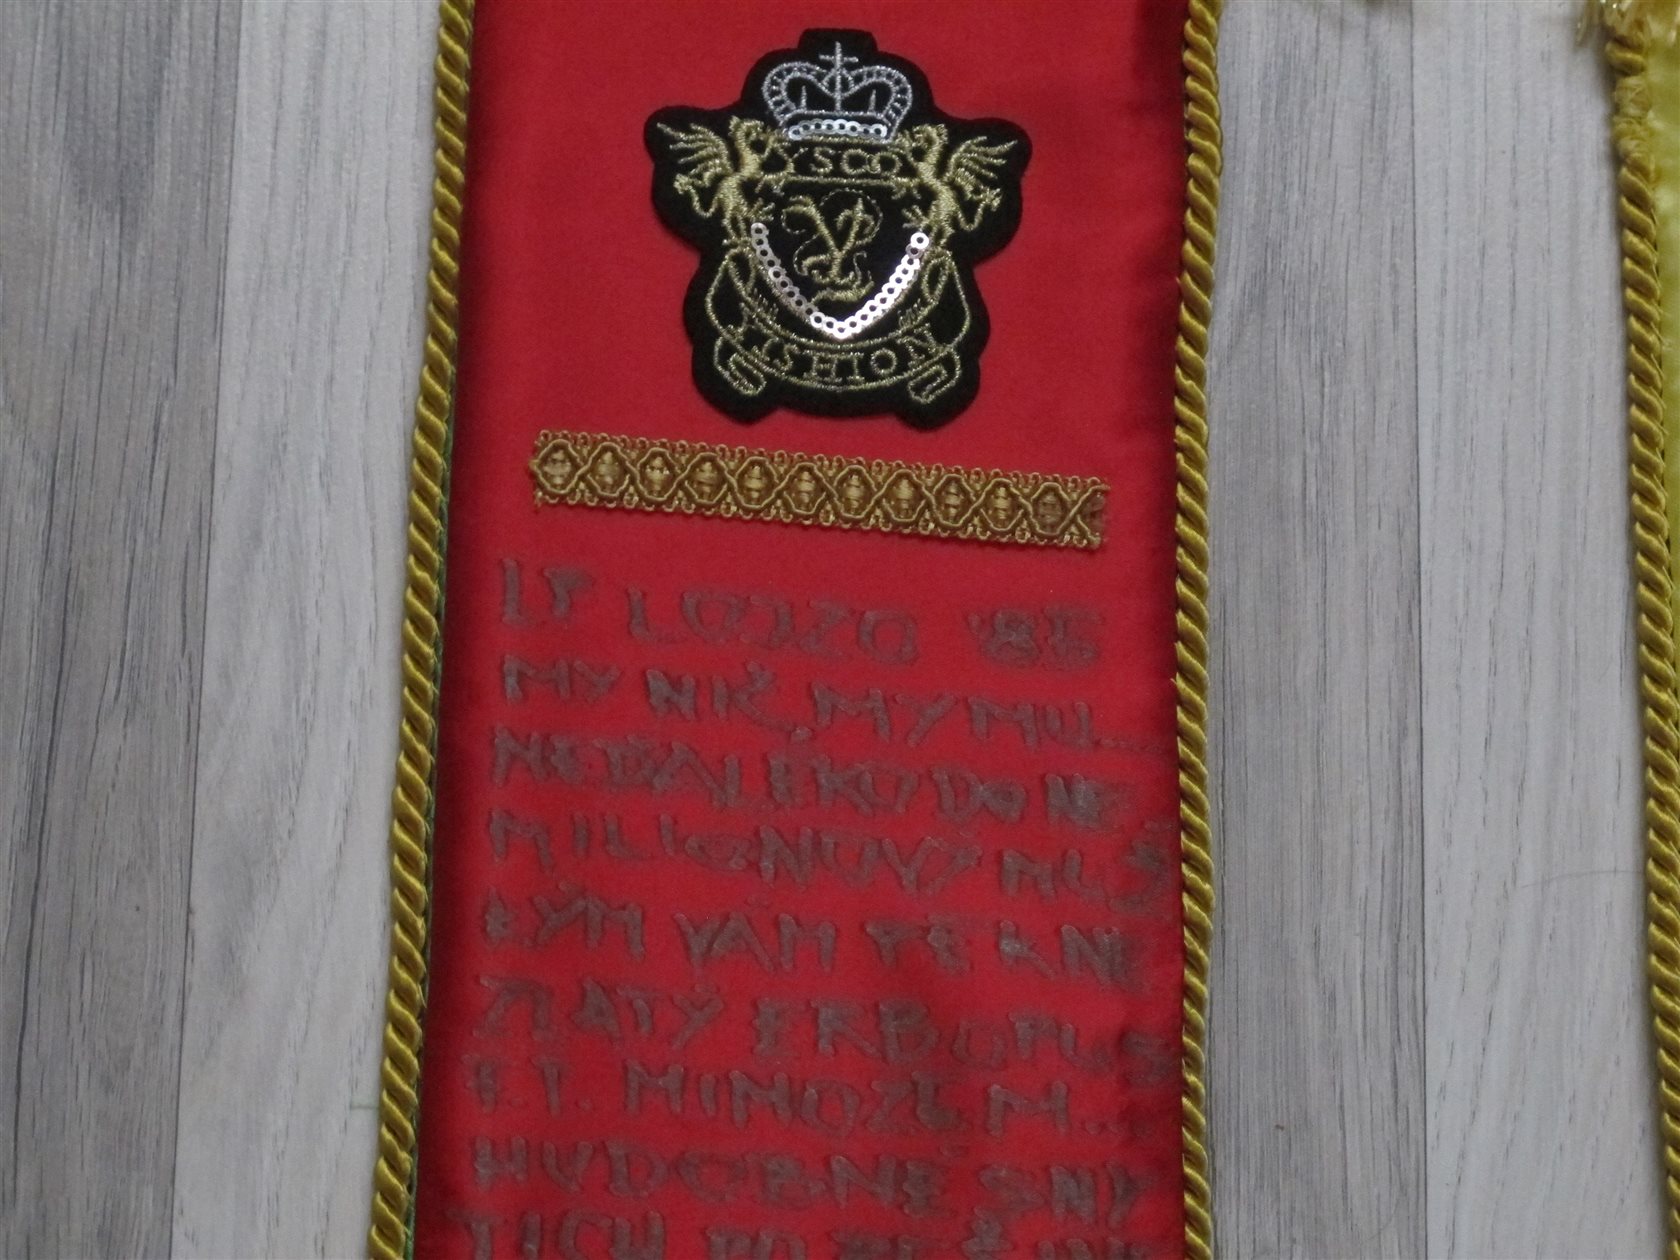 YSCO
ISHION
LP LOJZO '85
MY NIČ, MY MU...
NEĎALEKO DO NE
MILIONOVÝ MUŽ
VÁM PEKNE
ZLATÝ ERB OPUS
E.T. MIMOZEM...
HUDOBNÉ SNY